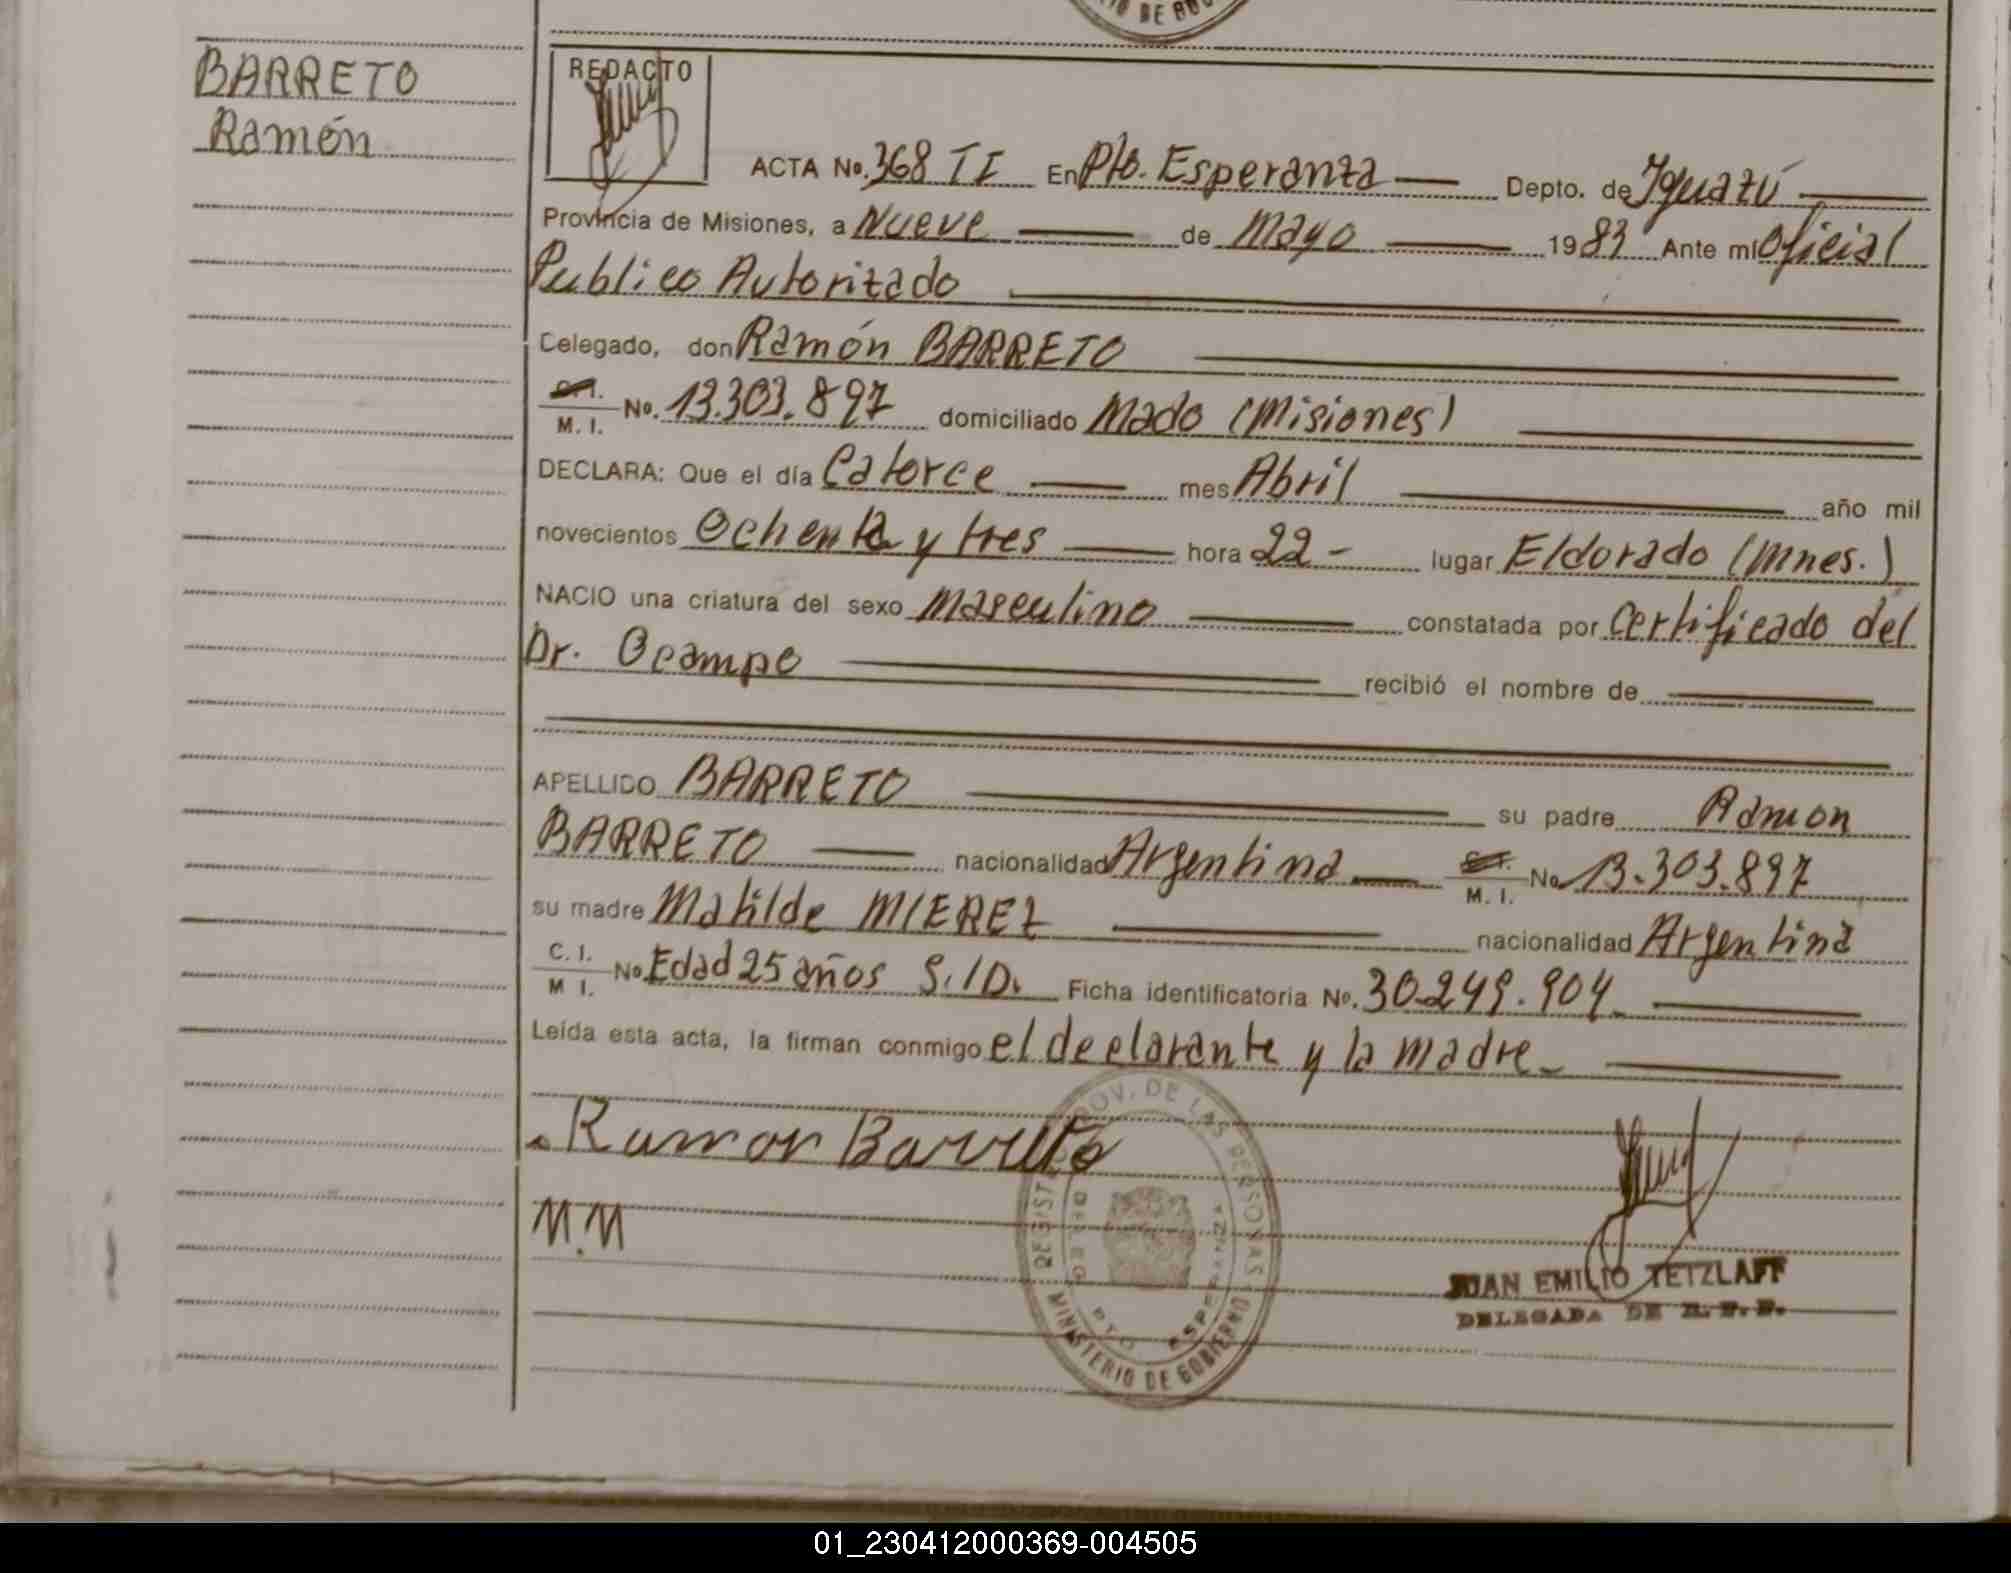 RIO DE
BARRETO
Ramón
REDACTO
ACTA No. 368 TI En Pto. Esperanza Depto. de Iguazú
Provincia de Misiones, a Nueve de Mayo 1983 Ante mí Oficial
Publico Autorizado
Celegado, don Ramón BARRETO
M. I. No. 13.303.897 domiciliado Mado (Misiones)
DECLARA: Que el día Catorce mes Abril año mil
novecientos Ochenta y tres hora 22- lugar Eldorado (Mnes.)
NACIO una criatura del sexo Masculino constatada por Certificado del
Dr. Ocampo recibió el nombre de
APELLIDO BARRETO su padre Ramon
BARRETO nacionalidad Argentina M. I. No 13.303.897
su madre Matilde MIEREZ nacionalidad Argentina
C. I. M I. No. Edad 25 años S./D. Ficha identificatoria No. 30.249.904
Leída esta acta, la firman conmigo el declarante y la madre.
Ramon Barreto
M.M
PROV. DE LAS PERSONAS
MINISTERIO DE GOBIERNO
DELEG. PTO ESPERANZA
JUAN EMILIO TETZLAFF
DELEGADA DE R. P. P.
01_230412000369-004505